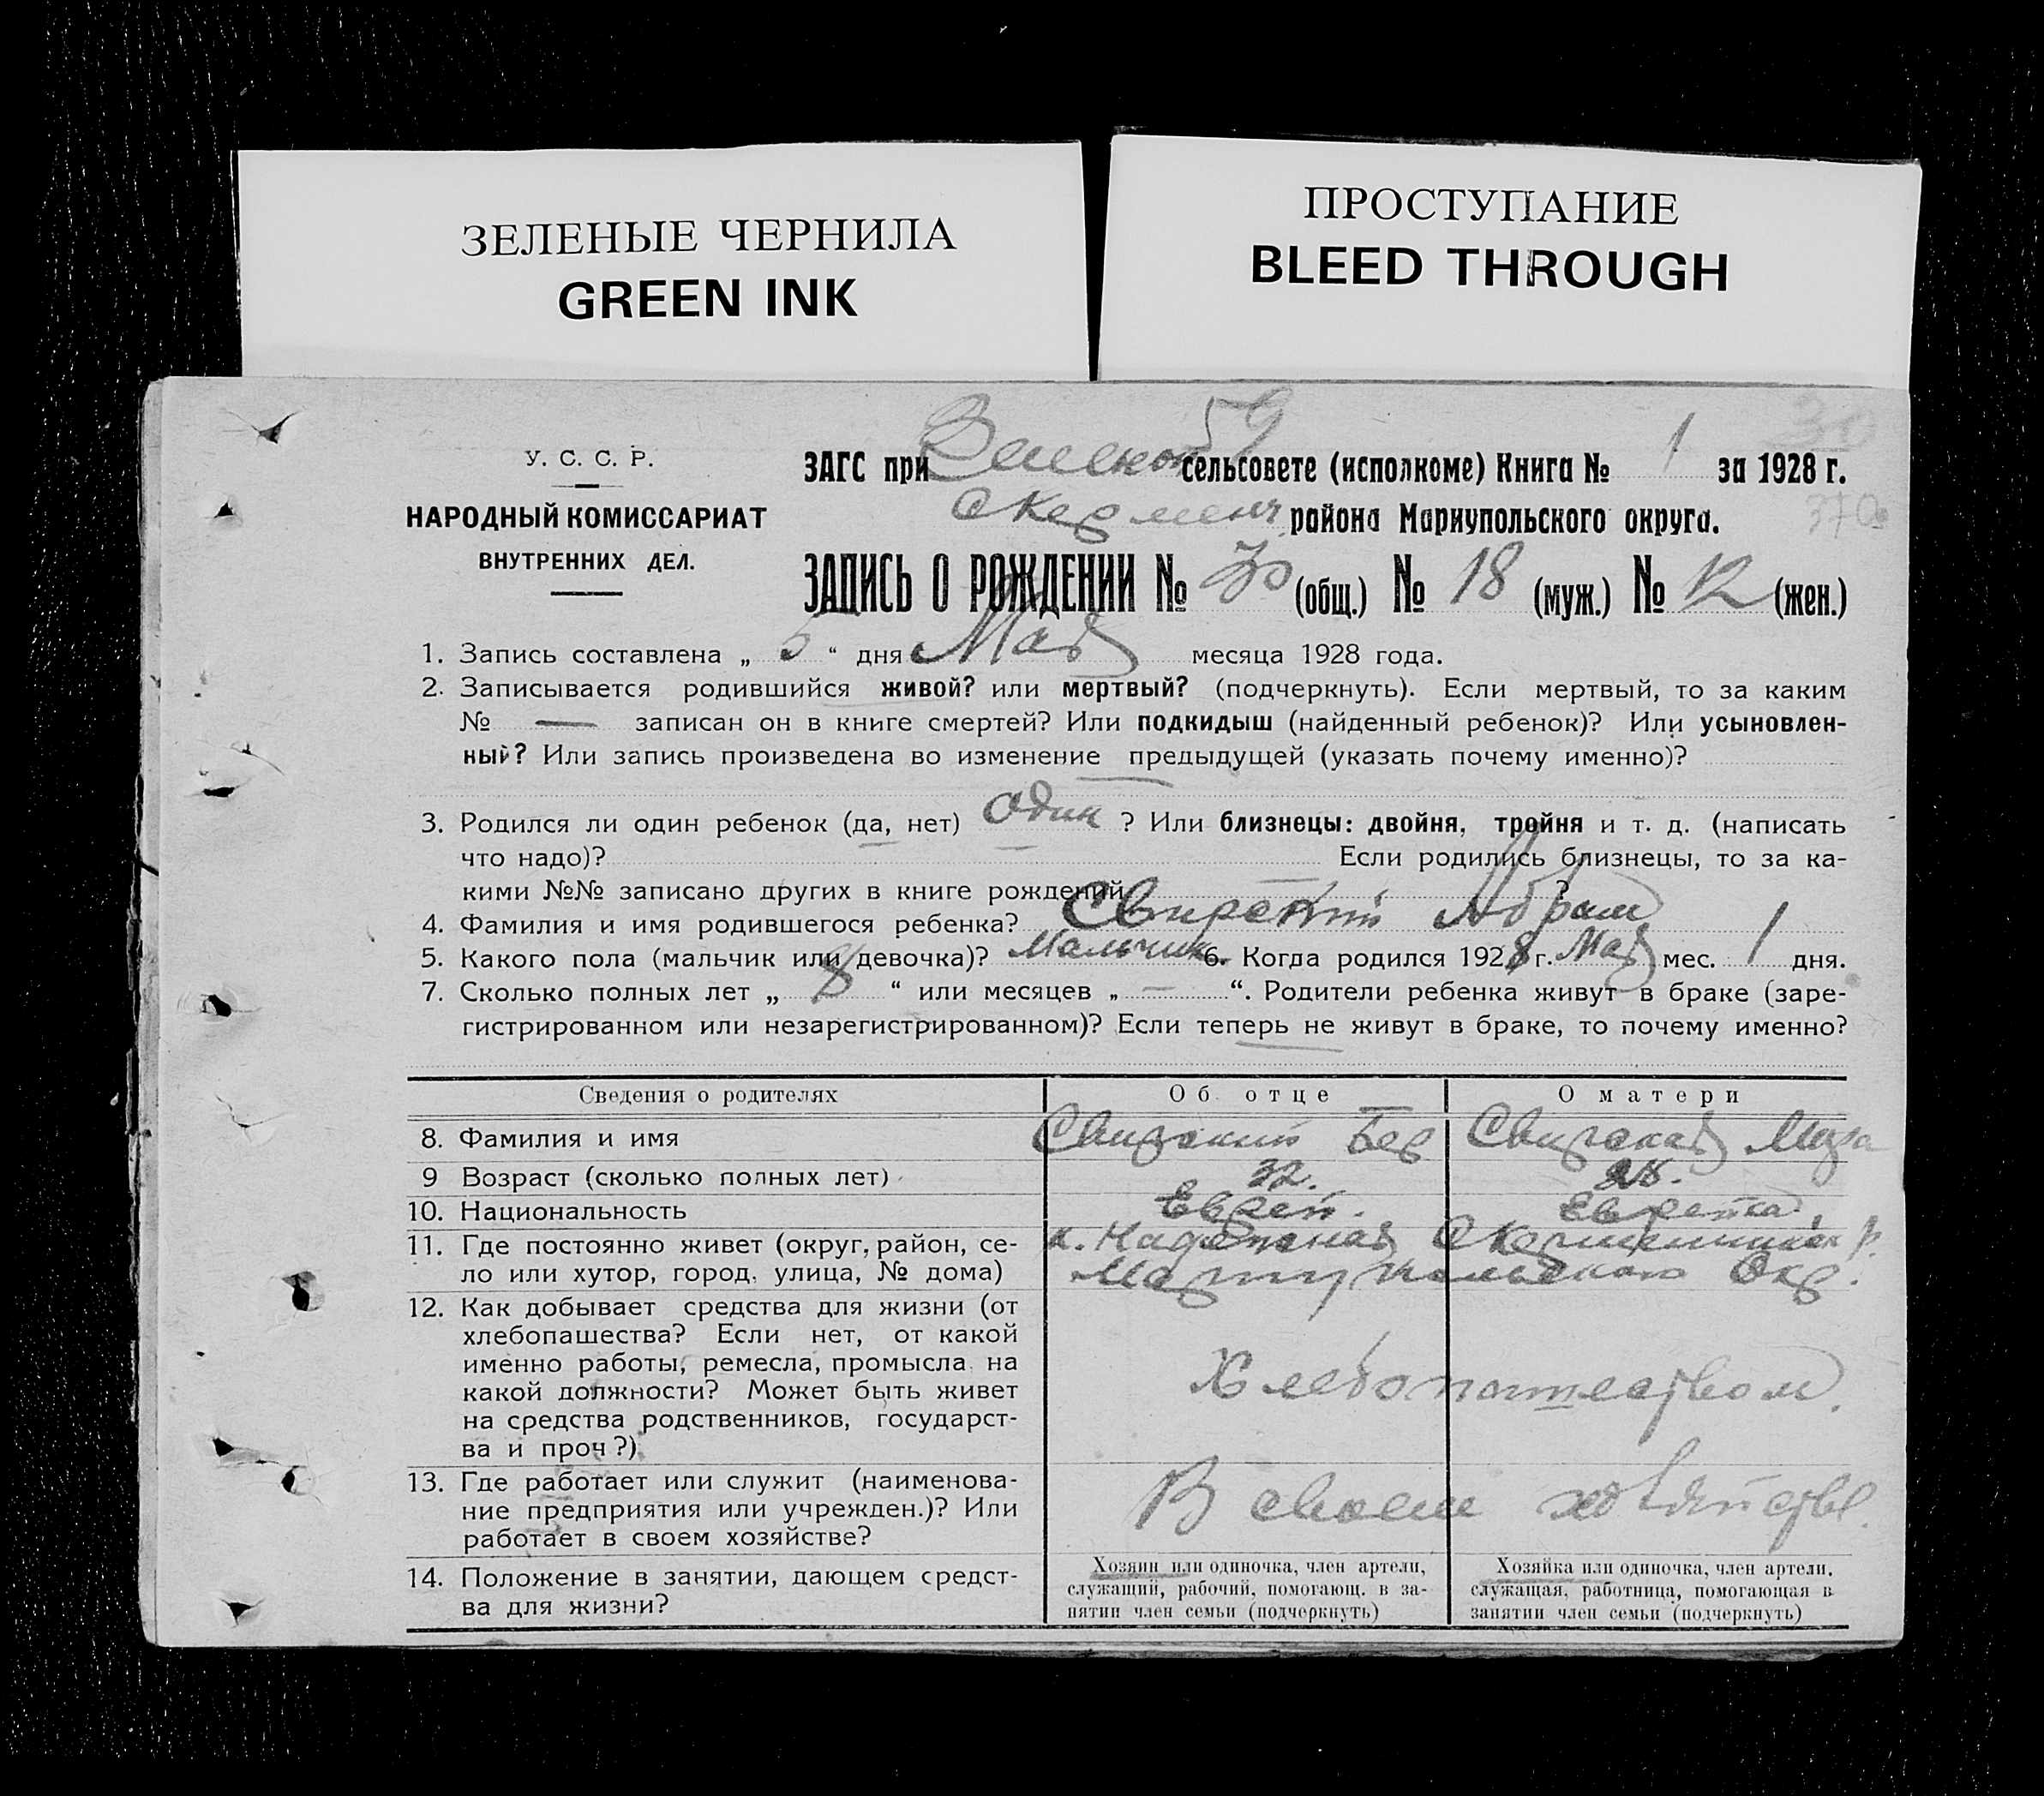 ЗЕЛЕНЫЕ ЧЕРНИЛА
GREEN INK
ПРОСТУПАНИЕ
BLEED THROUGH
59
30
У. С. С. Р.
НАРОДНЫЙ КОМИССАРИАТ
ВНУТРЕННИХ ДЕЛ.
ЗАГС при сельсовете (исполкоме) Книга № 1 за 1928 г.
района Мариупольского округа.
ЗАПИСЬ О РОЖДЕНИИ № 30 (общ.) № 18 (муж.) № 12 (жен.)
1. Запись составлена „ 5 “ дня Мая месяца 1928 года.
2. Записывается родившийся живой? или мертвый? (подчеркнуть). Если мертвый, то за каким
№ — записан он в книге смертей? Или подкидыш (найденный ребенок)? Или усыновлен-
ный? Или запись произведена во изменение предыдущей (указать почему именно)?
3. Родился ли один ребенок (да, нет) один ? Или близнецы: двойня, тройня и т. д. (написать
что надо)? Если родились близнецы, то за ка-
кими №№ записано других в книге рождений ?
4. Фамилия и имя родившегося ребенка? Свирский Абрам
5. Какого пола (мальчик или девочка)? Мальчик 6. Когда родился 1928 г. Мая мес. 1 дня.
7. Сколько полных лет „ 8 “ или месяцев „ — “. Родители ребенка живут в браке (заре-
гистрированном или незарегистрированном)? Если теперь не живут в браке, то почему именно?
Сведения о родителях Об отце О матери
8. Фамилия и имя Свирский Бер Свирская
9 Возраст (сколько полных лет) 32. 28.
10. Национальность Еврей. Еврейка.
11. Где постоянно живет (округ, район, се-
ло или хутор, город, улица, № дома)
к. Надежная р.
Мариупольского Окр.
12. Как добывает средства для жизни (от
хлебопашества? Если нет, от какой
именно работы, ремесла, промысла на
какой должности? Может быть живет
на средства родственников, государст-
ва и проч?)
Хлебопашеством.
13. Где работает или служит (наименова-
ние предприятия или учрежден.)? Или
работает в своем хозяйстве?
В своем хозяйстве.
14. Положение в занятии, дающем средст-
ва для жизни?
Хозяин или одиночка, член артели,
служащий, рабочий, помогающ. в за-
нятии член семьи (подчеркнуть)
Хозяйка или одиночка, член артели,
служащая, работница, помогающая в
занятии член семьи (подчеркнуть)